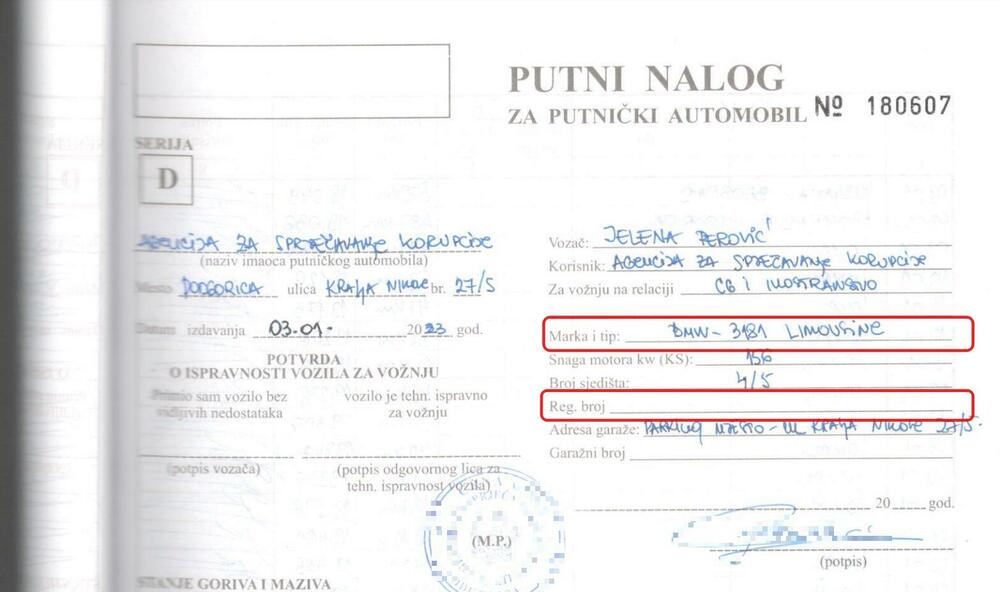 PUTNI NALOG
ZA PUTNIČKI AUTOMOBIL № 180607
SERIJA
D
AGENCIJA ZA SPRJEČAVANJE KORUPCIJE
(naziv imaoca putničkog automobila)
Mesto PODGORICA ulica KRALJA NIKOLE br. 27/5
Datum izdavanja 03.01- 2023 god.
POTVRDA
O ISPRAVNOSTI VOZILA ZA VOŽNJU
Primio sam vozilo bez vidljivih nedostataka
vozilo je tehn. ispravno za vožnju
(potpis vozača)
(potpis odgovornog lica za tehn. ispravnost vozila)
(M.P.)
STANJE GORIVA I MAZIVA
Vozač: JELENA PEROVIĆ
Korisnik: AGENCIJA ZA SPRJEČAVANJE KORUPCIJE
Za vožnju na relaciji CG I INOSTRANSTVO
Marka i tip: BMW - 318I LIMOUSINE
Snaga motora kw (KS): 156
Broj sjedišta: 4/5
Reg. broj
Adresa garaže: PARKING MJESTO - UL KRALJA NIKOLE 27/5.
Garažni broj
20 god.
(potpis)